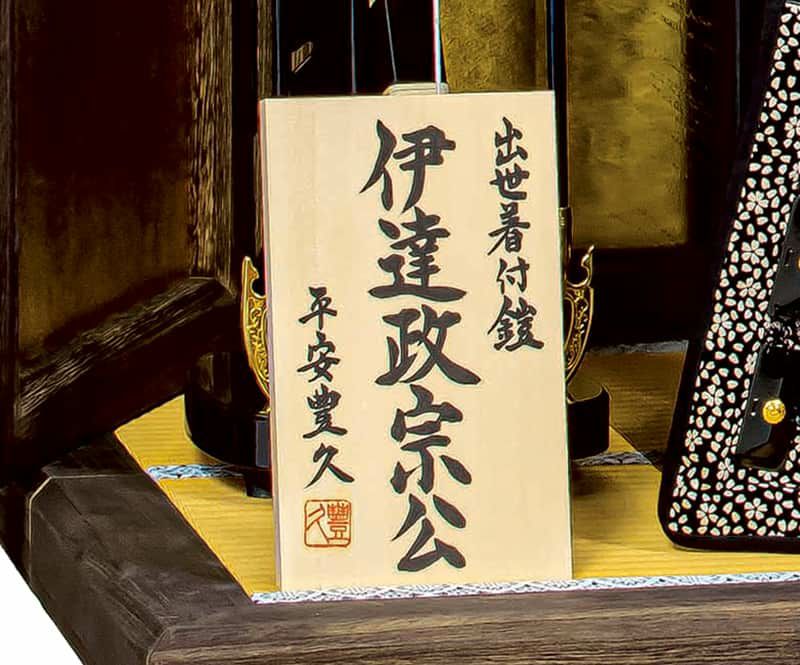 出世着付鎧
伊達政宗公
平安豊久
豊久